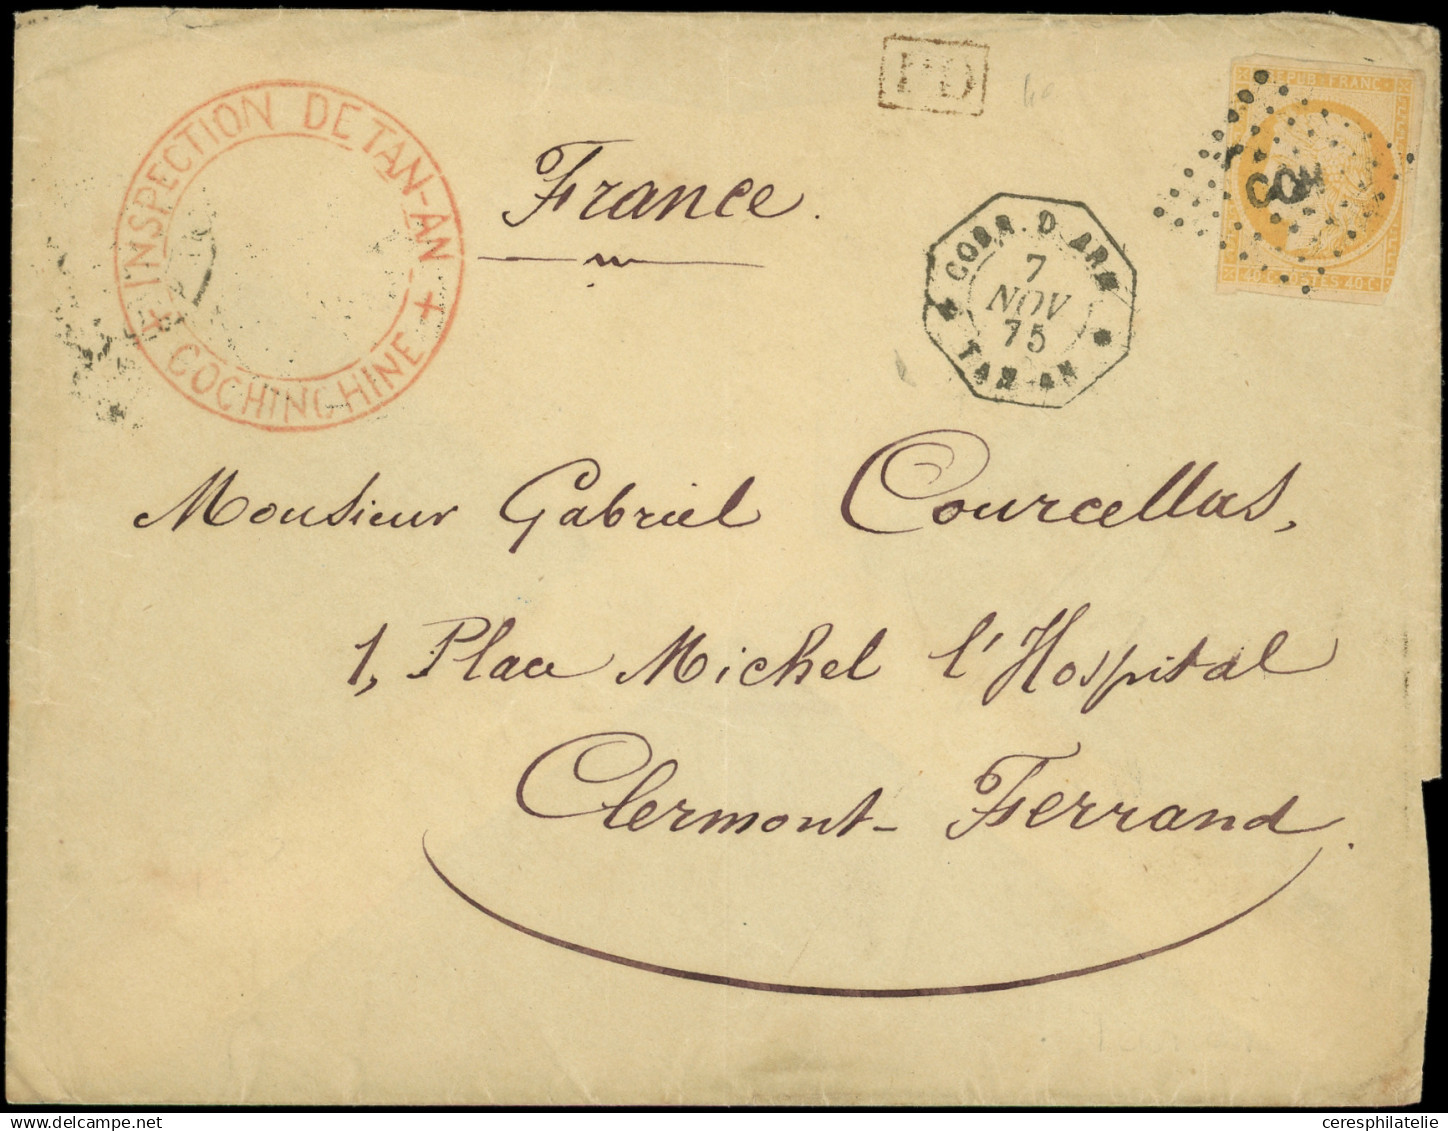 INSPECTION DE TAN-AN
+ COCHINCHINE +
PD
REPUB FRANC
CCH
40 C POSTES 40 C
France.
CORR. D. ARM
7
NOV
75
TAN-AN
Monsieur Gabriel Courcellas,
1, Place Michel l'Hospital
Clermont-Ferrand.
ceresphilatelie